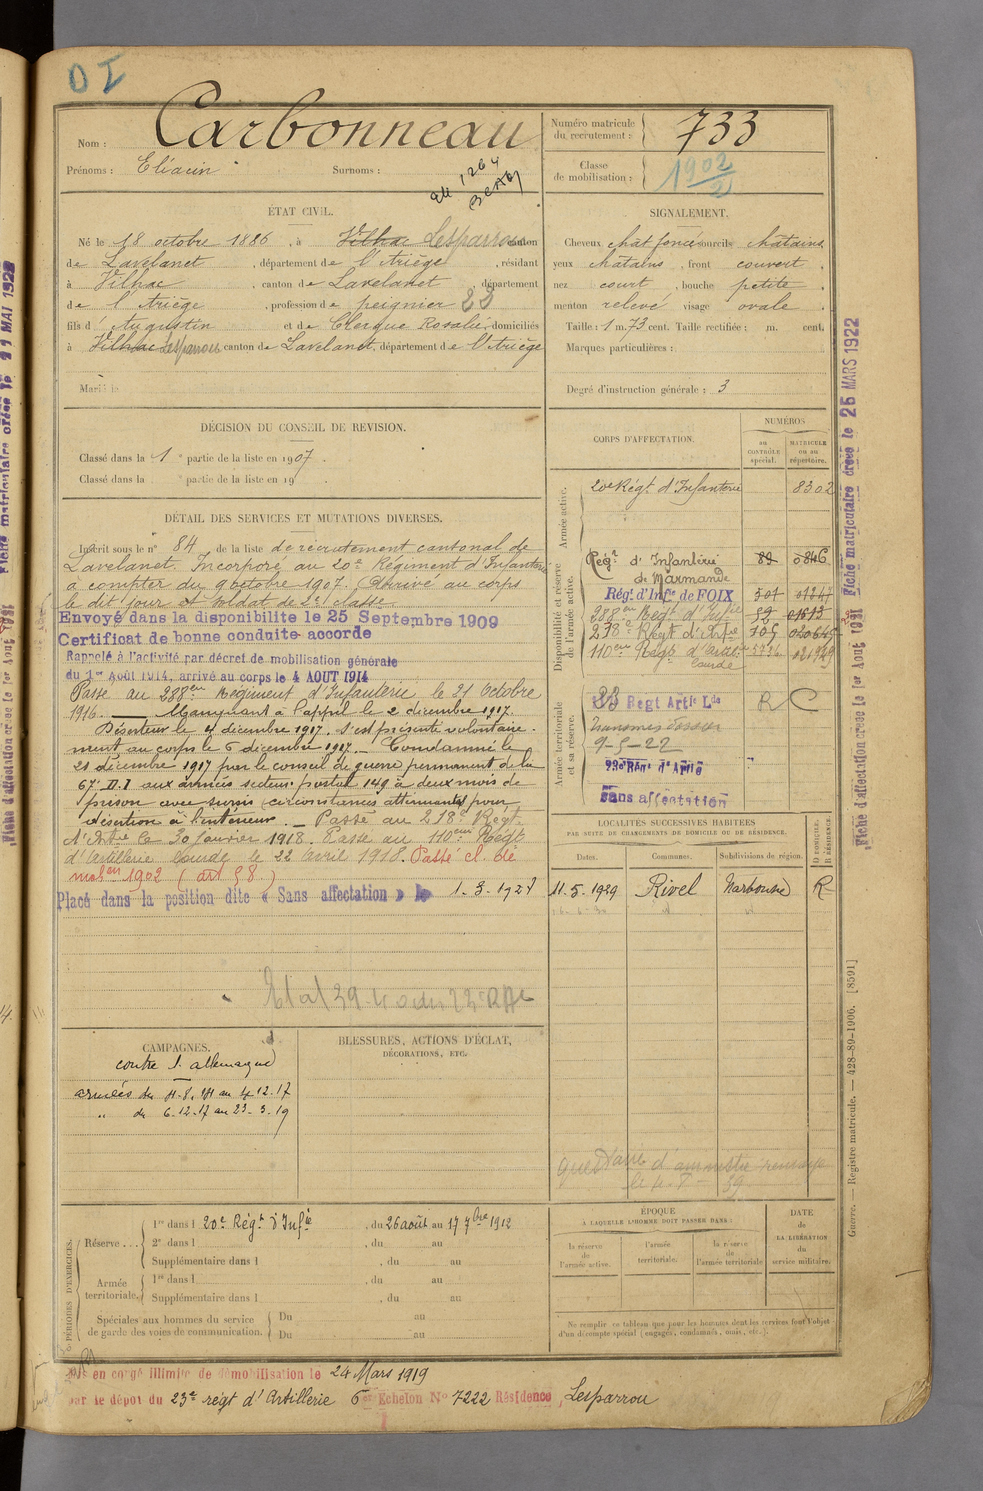 D I
Nom : Carbonneau
Prénoms : Eliacin Surnoms :
Numéro matricule du recrutement : 733
Classe de mobilisation : 1902
ÉTAT CIVIL.
Né le 18 octobre 1886, à Vilhac Lesparrou canton
de Lavelanet, département de l'Ariège, résidant
à Vilhac, canton de Lavelanet, département
de l'Ariège, profession de peignier 23
fils d'Augustin et de Clergue Rosalie, domiciliés
à Vilhac Lesparrou canton de Lavelanet, département de l'Ariège
Marié à
SIGNALEMENT.
Cheveux chât foncé sourcils châtains
yeux châtains, front couvert,
nez court, bouche petite,
menton relevé visage ovale.
Taille : 1 m. 73 cent. Taille rectifiée : m. cent.
Marques particulières :
Degré d'instruction générale : 3
DÉCISION DU CONSEIL DE REVISION.
Classé dans la 1e partie de la liste en 1907.
Classé dans la e partie de la liste en 19
DÉTAIL DES SERVICES ET MUTATIONS DIVERSES.
Inscrit sous le n° 84 de la liste de recrutement cantonal de
Lavelanet. Incorporé au 20e Régiment d'Infanterie
à compter du 9 octobre 1907. Arrivé au corps
le dit jour et soldat de 2e classe.
Envoyé dans la disponibilité le 25 Septembre 1909
Certificat de bonne conduite accordé
Rappelé à l'activité par décret de mobilisation générale
du 1er Août 1914, arrivé au corps le 4 AOUT 1914
Passé au 288em Régiment d'Infanterie le 21 Octobre
1916. Manquant à l'appel le 2 décembre 1917.
Déserteur le 4 décembre 1917. S'est présenté volontaire-
ment au corps le 6 décembre 1917. Condamné le
21 décembre 1917 par le conseil de guerre permanent de la
67e D.I aux armées secteur postal 149 à deux mois de
prison avec sursis (circonstances atténuantes) pour
désertion à l'intérieur. Passé au 238e Régt
d'Artie le 30 Janvier 1918. Passé au 110ème Régt
d'Artillerie lourde le 22 avril 1918. Passé cl. de
mobon 1902 (art 58.)
Placé dans la position dite « Sans affectation » le 1.3.1927
CORPS D'AFFECTATION.
NUMÉROS
au CONTRÔLE spécial.
MATRICULE ou au répertoire.
Armée active.
20e Régt d'Infanterie 8302
Disponibilité et réserve de l'armée active.
Régt d'Infanterie de Marmande
Régt d'Infie de FOIX
288em Régt d'Infie
238e Régt d'Artie
110em Régt d'Artie Lourde
Armée territoriale et sa réserve.
Régt Artie Lde R C
9-5-22
Régt d'Artie
Sans affectation
LOCALITÉS SUCCESSIVES HABITÉES
PAR SUITE DE CHANGEMENTS DE DOMICILE OU DE RÉSIDENCE.
Dates. Communes. Subdivisions de région. D DOMICILE. R RÉSIDENCE.
11.5.1929 Rivel Narbonne R
CAMPAGNES.
contre l'allemagne
armées du 4.8.14 au 4.12.17
" du 6.12.17 au 23.3.19
BLESSURES, ACTIONS D'ÉCLAT, DÉCORATIONS, ETC.
PÉRIODES D'EXERCICES.
Réserve . . .
1re dans l 20e Régt d'Infie, du 26 août au 17 7bre 1912
2e dans l , du au
Supplémentaire dans l , du au
Armée territoriale.
1re dans l , du au
Supplémentaire dans l , du au
Spéciales aux hommes du service de garde des voies de communication.
Du au
Du au
ÉPOQUE
À LAQUELLE L'HOMME DOIT PASSER DANS :
la réserve de l'armée active.
l'armée territoriale.
la réserve de l'armée territoriale
DATE de LA LIBÉRATION du service militaire.
Ne remplir ce tableau que pour les hommes dont les services font l'objet
d'un décompte spécial (engagés, condamnés, omis, etc.).
en congé illimité de démobilisation le 24 Mars 1919
par le dépôt du 23e régt d'Artillerie 6e Echelon No 7222 Résidence, Lesparrou
Fiche matriculaire créée le 25 MARS 1922
Fiche d'affectation créée le 1er Août 1931
Guerre. — Registre matricule. — 428-89-1906. [8591]